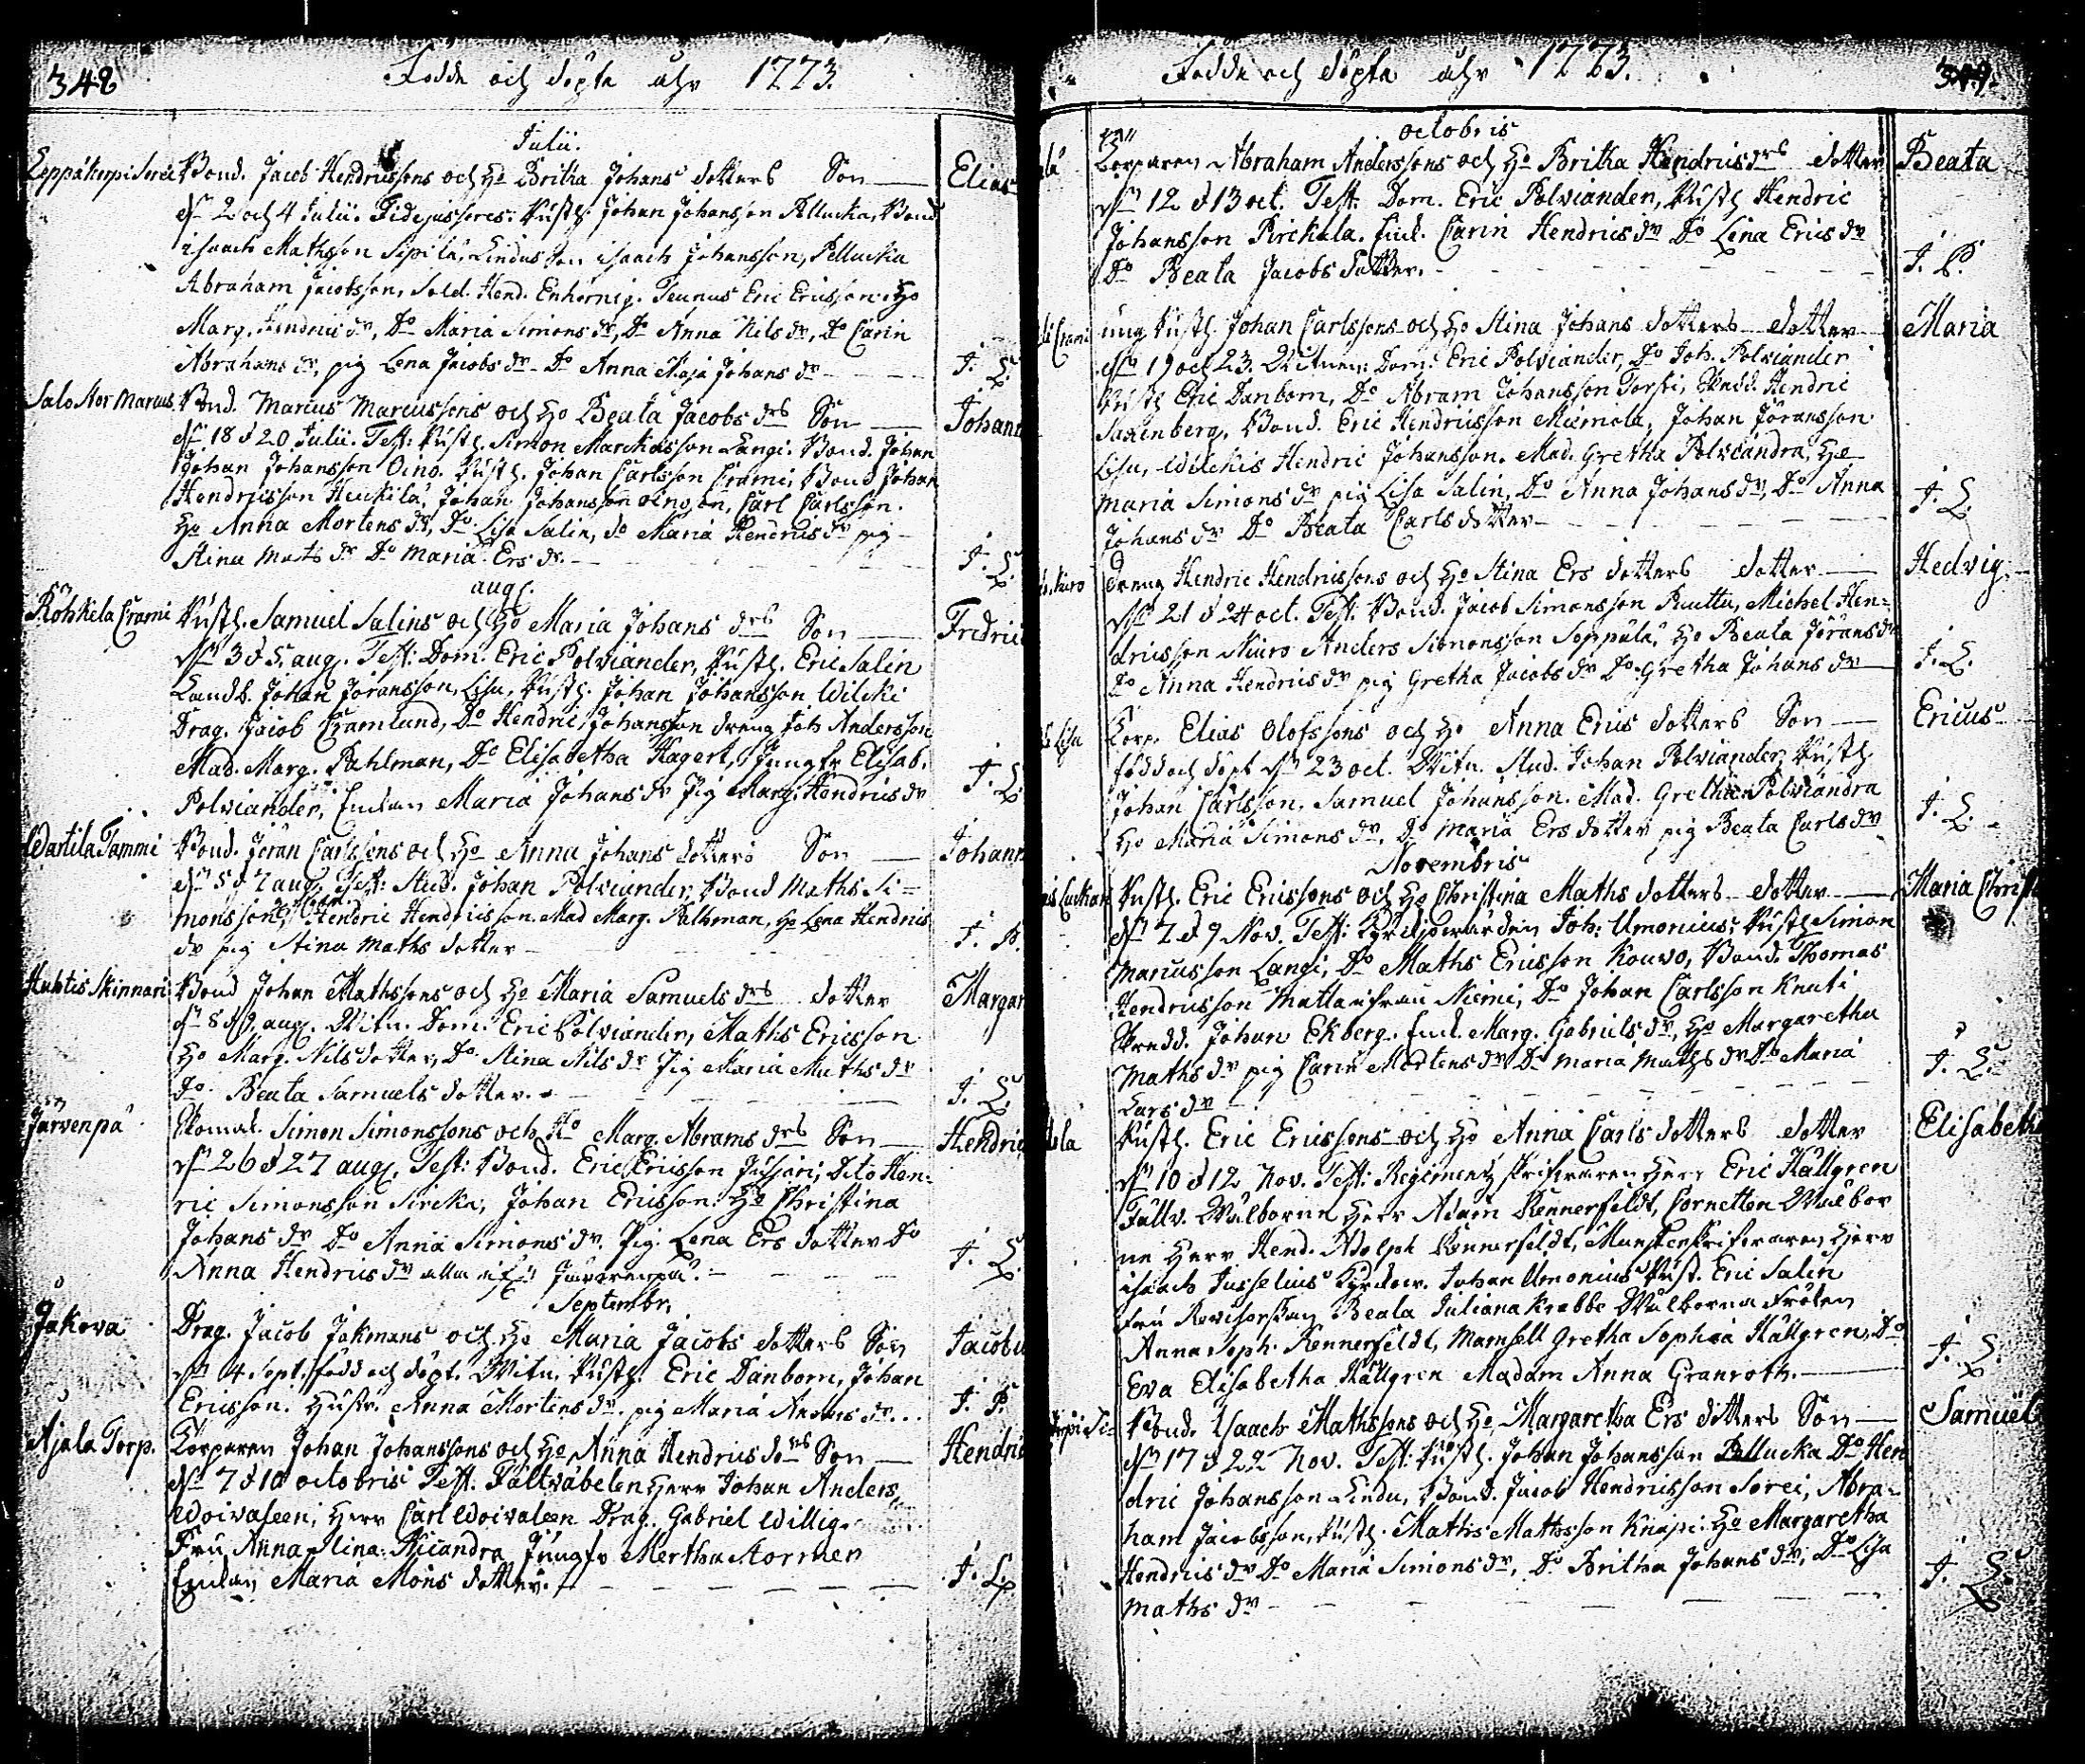 348
Födde och döpta åhr 1773.
Julii.
Leppäkorpi Sorei Bond. Jacob Hendricssons och Ho Britha Johans dotters Son — Elias
d. 2 och 4 Julii. Fidejussores: Rusth. Johan Johansson Pellucka, Bond.
isaach Mathsson Sipilä, Lindus son isaach Johansson, Pellucka
Abraham Jacobsson, Sold. Hend. Enhörnig. Teunus Eric Ericsson. Ho
Marg. Hendrics dr, Do Maria Simons dr, Do Anna Nils dr, Do Carin
Abrahams dr, pig Lena Jacobs dr. Do Anna Maja Johans dr — J. L.
Salo Stor Marcus Bond. Marcus Marcussons och Ho Beata Jacobs drs Son — Johann
d. 18 d 20 Julii. Test: Rusth. Simon Marckusson Langi. Bond. Johan
Johan Johansson Oino. Rusth. Johan Carlsson Crami, Bond Johan
Hendricsson Heickilä, Johan Johansson, Carl Carlsson.
Ho Anna Mortens dr, Do Lisa Salin, do Maria Hendrics dr pig
Stina Mats dr Do Maria Ers dr. — J. L.
aug.
Röhkela Crami Rusth. Samuel Salins och Ho Maria Johans drs Son — Fredric
d. 3 d 5 aug. Test: Dom. Eric Polviander, Rusth. Eric Salin
Landb. Johan Joransson, Lisu, Rusth. Johan Johansson Wilcki
Drag. Jacob Cramlund, Do Hendric Johansson dreng Joh Andersson
Mad. Marg. Pahlman, Do Elisabetha Hagert, Jungfr Elisab.
Polviander, Enckan Maria Johans dr Pig Marg. Hendrics dr J. L.
Wartila Tammi Bond. Jöran Carlssons och Ho Anna Johans dotters Son — Johann
d. 5 d 7 aug. Test: Stud. Johan Polviander, Bond Maths Si=
monsson, Hendric Hendricsson. Mad Marg. Palhman, Ho Lena Hendrics
dr pig Stina Maths dotter — J. P.
Huhtis Skinnari Bond Johan Mathssons och Ho Maria Samuels drs dotter Margar
d. 8 d 9 aug. Witn. Dom. Eric Polviander, Maths Ericsson
Ho Marg. Nils dotter, Do Stina Nils dr Pig Maria Maths dr
Do Beata Samuels dotter. — J. L.
Järvenpä Simon Simonssons och Ho Marg. Abrams drs Son — Hendric
d. 26 d 27 aug. Test: Bond. Eric Ericsson, Dito Hen=
ric Simonsson Sircka, Johan Ericsson. Ho Christina
Johans dr Do Anna Simons dr. Pig. Lena Ers dotter Do
Anna Hendrics dr alla Järvenpä. — J. L.
Septembr.
Jakova Drag. Jacob Jakmans och Ho Maria Jacobs dotters Son Jacobu
d. 4. sept. född och döpt. Witn. Rusth. Eric Danborn, Johan
Ericsson. Hustr. Anna Mortens dr. pig Maria Anders dr... J. P.
Ajala Torp. Torparen Johan Johanssons och Ho Anna Hendrics drs Son — Hendric
d. 7 d 10 octobris Test. Fältväbelen Herr Johan Anders
Woivaleen, Herr Carl Woivaleen Drag. Gabriel Willig.
Fru Anna Stina Kicandra Jungfr Mertha Stormer
Enckan Maria Mons dotter. — J. L.
Födde och döpta åhr 1773.
349.
octobris
Torparen Abraham Anderssons och Ho Britha Hendricsdrs dotter Beata
d. 12 d 13 oct. Test: Dom. Eric Polviander, Rusth Hendric
Johansson Pirckala. Enck. Carin Hendrics dr Do Lena Erics dr
Do Beata Jacobs dotter. — J. P.
Crami ung Rusth. Johan Carlssons och Ho Stina Johans dotters dotter Maria
d. 19 och 23. Witnen: Dom. Eric Polviander, Do Joh. Polviander
Rusth Eric Danborn, Do Abram Johansson Torfti, Hendric
Saxenberg, Bond. Eric Hendricsson Miemola, Johan Joransson
Lisu, Wilckis Hendric Johansson. Mad. Gretha Polviandra, Ho
Maria Simons dr pig Lisa Salin, Do Anna Johans dr, Do Anna
Johans dr Do Beata Carls dotter — J. L.
Kiuro Dreng Hendric Hendricssons och Ho Stina Ers dotters dotter — Hedvig.
d. 21 d 24 oct. Test: Bond. Jacob Simonsson Ruuttu, Michel Hen=
dricsson Kiuro Anders Simonsson Soppala, Ho Beata Jörans dr
Do Anna Hendrics dr pig Gretha Jacobs dr Do Gretha Johans dr — J. L.
Lisu Torp. Elias Olofssons och Ho Anna Erics dotters Son — Ericus
född och döpt d. 23 oct. Witn. Stud. Johan Polviander, Rusth.
Johan Carlsson. Samuel Johansson. Mad. Gretha Polviandra
Ho Maria Simons dr, Do Maria Ers dotter pig Beata Carls dr J. L.
Novembris
Rusth. Eric Ericssons och Ho Christina Maths dotters dotter — Maria Christ
d. 7 d 9 Nov. Test: Joh: Umonius: Rusth Simon
Marcusson Langi, Do Maths Ericsson Kouvo, Bond. Thomas
Hendricsson Mattarfrau Niemi, Do Johan Carlsson Knuti
Johan Ekberg. Enck. Marg. Gabriels dr, Ho Margaretha
Maths dr pig Carin Mortens dr Do Maria Maths dr Do Maria
Lars dr — J. L.
Rusth. Eric Ericssons och Ho Anna Carls dotters dotter Elisabeth
d. 10 d 12 Nov. Test: Regiments skrifvaren Herr Eric Hällgren
Fältv. Wälborne Herr Adam Rennerfeldt, Cornetten Wälbor
ne Herr Hend. Adolph Rennerfeldt, Munsterskrifvaren Herr
isaach Jusselius Johan Umonius Rust. Eric Salin
Fru Revisorskan Beata Juliana Krabbe Wälborna Fröken
Anna Soph. Rennerfeldt, Mamsell Gretha Sophia Hällgren, Do
Eva Elisabetha Hällgren Madam Anna Granroth. — J. L.
Bond. Isaach Mathssons och Ho Margaretha Ers dotters Son — Samuel
d. 17 d 22 Nov. Test: Rusth. Johan Johansson Pellucka Do Hen
dric Johansson Lindu, Bond. Jacob Hendricsson Sorei, Abra=
ham Jacobsson, Rusth. Maths Mathsson Knapi. Ho Margaretha
Hendrics dr Do Maria Simons dr, Do Britha Johans dr, Do Lisa
Maths dr — J. L.